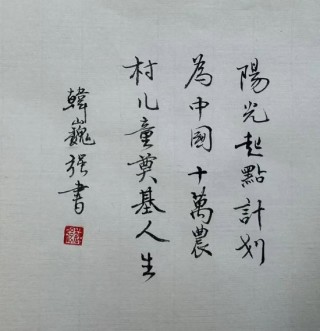 陽光起點計划
為中國十萬農
村儿童奠基人生
韓巍強書